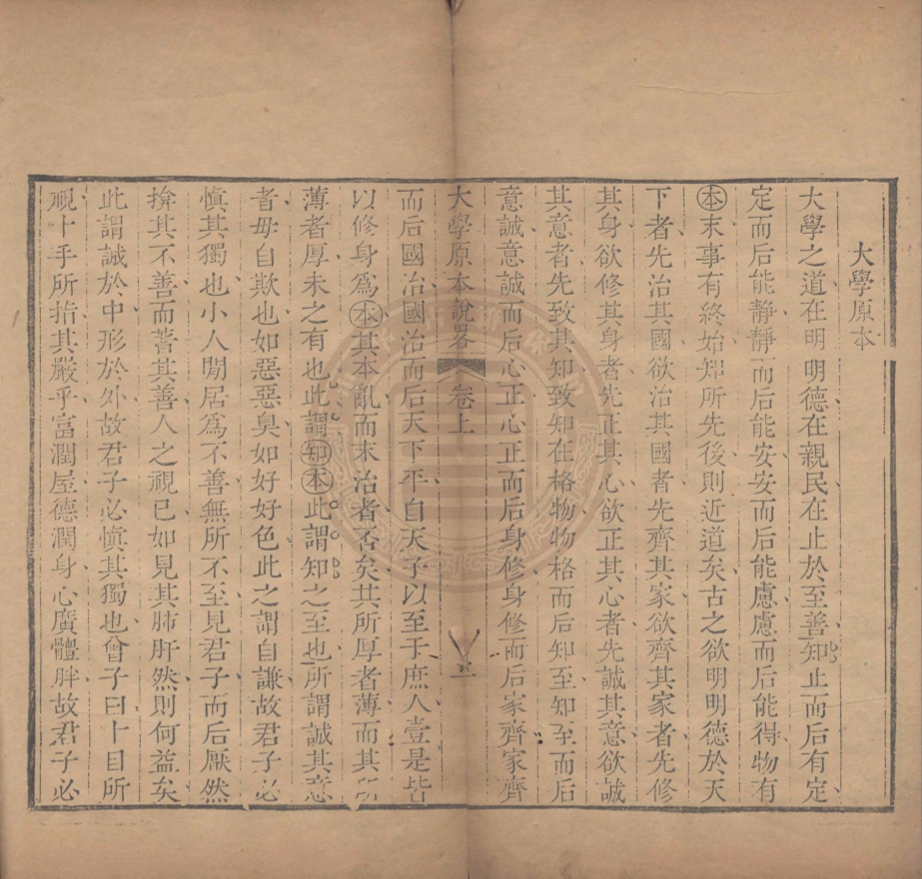 大學原本
大學之道在明明德在親民在止於至善知止而后有定
定而后能靜靜而后能安安而后能慮慮而后能得物有
本末事有終始知所先後則近道矣古之欲明明德於天
下者先治其國欲治其國者先齊其家欲齊其家者先修
其身欲修其身者先正其心欲正其心者先誠其意欲誠
其意者先致其知致知在格物物格而后知至知至而后
意誠意誠而后心正心正而后身修身修而后家齊家齊
大學原本說畧 卷上 一
而后國治國治而后天下平自天子以至于庶人壹是皆
以修身爲本其本亂而末治者否矣其所厚者薄而其所
薄者厚未之有也此謂知本此謂知之至也所謂誠其意
者毋自欺也如惡惡臭如好好色此之謂自謙故君子必
慎其獨也小人閒居爲不善無所不至見君子而后厭然
揜其不善而著其善人之視己如見其肺肝然則何益矣
此謂誠於中形於外故君子必慎其獨也曾子曰十目所
視十手所指其嚴乎富潤屋德潤身心廣體胖故君子必